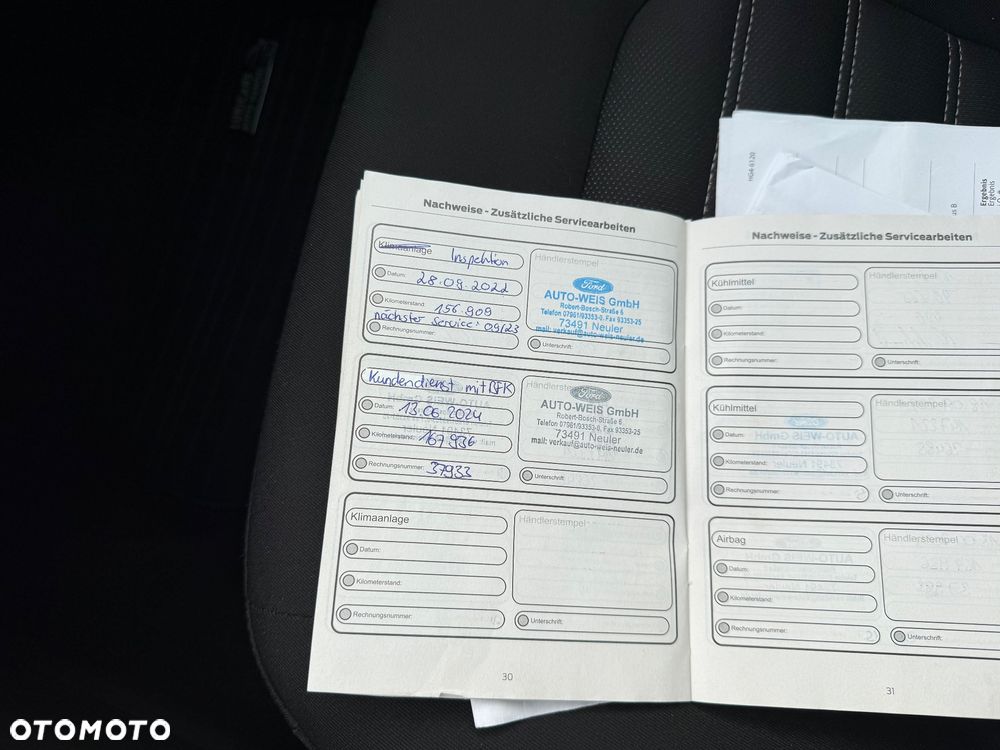 HG4-6120
us B
Ergebnis
Ergebnis
Nachweise - Zusätzliche Servicearbeiten
Klimaanlage Inspektion
Datum: 28.09.2022
Kilometerstand: 156.909
nächster Service: 09/23
Rechnungsnummer:
Händlerstempel
Ford
AUTO-WEIS GmbH
Robert-Bosch-Straße 6
Telefon 07961/93353-0, Fax 93353-25
73491 Neuler
mail: verkauf@auto-weis-neuler.de
Unterschrift:
Kundendienst mit BFK
Datum: 13.06.2024
Kilometerstand: 167936
Rechnungsnummer: 37933
Händlerstempel
Ford
AUTO-WEIS GmbH
Robert-Bosch-Straße 6
Telefon 07961/93353-0, Fax 93353-25
73491 Neuler
mail: verkauf@auto-weis-neuler.de
Unterschrift:
Klimaanlage
Datum:
Kilometerstand:
Rechnungsnummer:
Händlerstempel
Unterschrift:
30
Nachweise - Zusätzliche Servicearbeiten
Kühlmittel
Datum:
Kilometerstand:
Rechnungsnummer:
Händlerstempel
Unterschrift:
Kühlmittel
Datum:
Kilometerstand:
Rechnungsnummer:
Händlerstempel
Unterschrift:
Airbag
Datum:
Kilometerstand:
Rechnungsnummer:
Händlerstempel
Unterschrift:
31
OTOMOTO